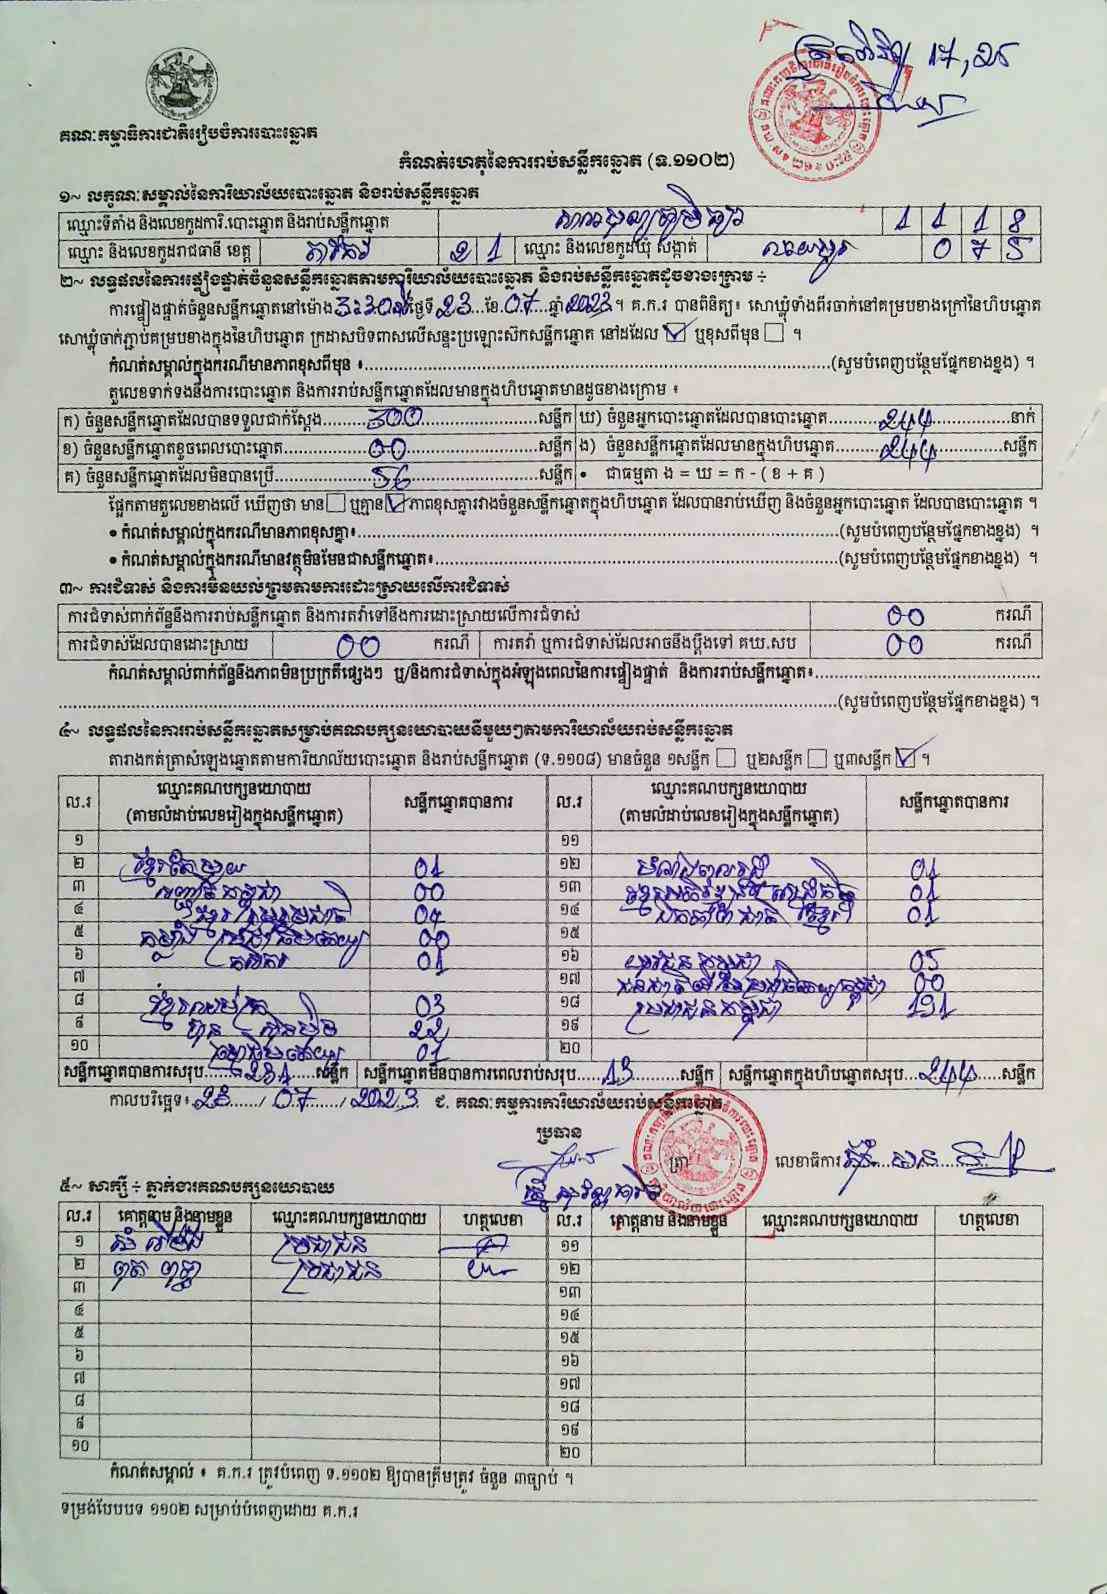 17,25
គណៈកម្មាធិការជាតិរៀបចំការបោះឆ្នោត
កំណត់ហេតុនៃការរាប់សន្លឹកឆ្នោត (ទ.១១០២)
១~ លក្ខណៈសម្គាល់នៃការិយាល័យបោះឆ្នោត និងរាប់សន្លឹកឆ្នោត
ឈ្មោះទីតាំង និងលេខកូដការិ.បោះឆ្នោត និងរាប់សន្លឹកឆ្នោត 1 1 1 8
ឈ្មោះ និងលេខកូដរាជធានី ខេត្ត តាកែវ 2 1 ឈ្មោះ និងលេខកូដឃុំ សង្កាត់ 0 7 5
២~ លទ្ធផលនៃការផ្ទៀងផ្ទាត់ចំនួនសន្លឹកឆ្នោតតាមការិយាល័យបោះឆ្នោត និងរាប់សន្លឹកឆ្នោតដូចខាងក្រោម ÷
ការផ្ទៀងផ្ទាត់ចំនួនសន្លឹកឆ្នោតនៅម៉ោង 3:30 ថ្ងៃទី 23 ខែ 07 ឆ្នាំ 2023 ។ គ.ក.រ បានពិនិត្យ៖ សោឃ្លុំទាំងពីរចាក់នៅគម្របខាងក្រៅនៃហិបឆ្នោត
សោឃ្លុំចាក់ភ្ជាប់គម្របខាងក្នុងនៃហិបឆ្នោត ក្រដាសបិទពាសលើសន្ទះប្រឡោះស៊កសន្លឹកឆ្នោត នៅដដែល ☑ ឬខុសពីមុន ☐ ។
កំណត់សម្គាល់ក្នុងករណីមានភាពខុសពីមុន ៖ (សូមបំពេញបន្ថែមផ្នែកខាងខ្នង) ។
តួលេខទាក់ទងនឹងការបោះឆ្នោត និងការរាប់សន្លឹកឆ្នោតដែលមានក្នុងហិបឆ្នោតមានដូចខាងក្រោម ៖
ក) ចំនួនសន្លឹកឆ្នោតដែលបានទទួលជាក់ស្តែង 300 សន្លឹក ឃ) ចំនួនអ្នកបោះឆ្នោតដែលបានបោះឆ្នោត 244 នាក់
ខ) ចំនួនសន្លឹកឆ្នោតខូចពេលបោះឆ្នោត 00 សន្លឹក ង) ចំនួនសន្លឹកឆ្នោតដែលមានក្នុងហិបឆ្នោត 244 សន្លឹក
គ) ចំនួនសន្លឹកឆ្នោតដែលមិនបានប្រើ 56 សន្លឹក • ជាធម្មតា ង = ឃ = ក - ( ខ + គ )
ផ្អែកតាមតួលេខខាងលើ ឃើញថា មាន ☐ ឬគ្មាន ☑ ភាពខុសគ្នារវាងចំនួនសន្លឹកឆ្នោតក្នុងហិបឆ្នោត ដែលបានរាប់ឃើញ និងចំនួនអ្នកបោះឆ្នោត ដែលបានបោះឆ្នោត ។
• កំណត់សម្គាល់ក្នុងករណីមានភាពខុសគ្នា៖ (សូមបំពេញបន្ថែមផ្នែកខាងខ្នង) ។
• កំណត់សម្គាល់ក្នុងករណីមានវត្ថុមិនមែនជាសន្លឹកឆ្នោត៖ (សូមបំពេញបន្ថែមផ្នែកខាងខ្នង) ។
៣~ ការជំទាស់ និងការមិនយល់ព្រមតាមការដោះស្រាយលើការជំទាស់
ការជំទាស់ពាក់ព័ន្ធនឹងការរាប់សន្លឹកឆ្នោត និងការតវ៉ាទៅនឹងការដោះស្រាយលើការជំទាស់ 00 ករណី
ការជំទាស់ដែលបានដោះស្រាយ 00 ករណី ការតវ៉ា ឬការជំទាស់ដែលអាចនឹងប្តឹងទៅ គឃ.សប 00 ករណី
កំណត់សម្គាល់ពាក់ព័ន្ធនឹងភាពមិនប្រក្រតីផ្សេងៗ ឬ/និងការជំទាស់ក្នុងអំឡុងពេលនៃការផ្ទៀងផ្ទាត់ និងការរាប់សន្លឹកឆ្នោត៖
(សូមបំពេញបន្ថែមផ្នែកខាងខ្នង) ។
៤~ លទ្ធផលនៃការរាប់សន្លឹកឆ្នោតសម្រាប់គណបក្សនយោបាយនីមួយៗតាមការិយាល័យរាប់សន្លឹកឆ្នោត
តារាងកត់ត្រាសំឡេងឆ្នោតតាមការិយាល័យបោះឆ្នោត និងរាប់សន្លឹកឆ្នោត (ទ.១១០៨) មានចំនួន ១សន្លឹក ☐ ឬ២សន្លឹក ☐ ឬ៣សន្លឹក ☑ ។
ល.រ ឈ្មោះគណបក្សនយោបាយ (តាមលំដាប់លេខរៀងក្នុងសន្លឹកឆ្នោត) សន្លឹកឆ្នោតបានការ ល.រ ឈ្មោះគណបក្សនយោបាយ (តាមលំដាប់លេខរៀងក្នុងសន្លឹកឆ្នោត) សន្លឹកឆ្នោតបានការ
១ ១១
២ ខ្មែរតែមួយ 01 ១២ 01
៣ កម្ពុជា 00 ១៣ 01
៤ ខ្មែររួបរួមជាតិ 04 ១៤ 01
៥ កម្លាំងប្រជាធិបតេយ្យ 00 ១៥
៦ កសិករ 01 ១៦ យុវជនកម្ពុជា 05
៧ ១៧ 00
៨ ខ្មែរ 03 ១៨ ប្រជាជនកម្ពុជា 191
៩ ហ៊្វុនស៊ិនប៉ិច 22 ១៩
១០ 01 ២០
សន្លឹកឆ្នោតបានការសរុប 231 សន្លឹក សន្លឹកឆ្នោតមិនបានការពេលរាប់សរុប 13 សន្លឹក សន្លឹកឆ្នោតក្នុងហិបឆ្នោតសរុប 244 សន្លឹក
កាលបរិច្ឆេទ៖ 23 / 07 / 2023 ជ. គណៈកម្មការការិយាល័យរាប់សន្លឹកឆ្នោត
ប្រធាន
ត្រា លេខាធិការ
៥~ សាក្សី ÷ ភ្នាក់ងារគណបក្សនយោបាយ
ល.រ គោត្តនាម និងនាមខ្លួន ឈ្មោះគណបក្សនយោបាយ ហត្ថលេខា ល.រ គោត្តនាម និងនាមខ្លួន ឈ្មោះគណបក្សនយោបាយ ហត្ថលេខា
១ ប្រជាជន ១១
២ ប្រជាជន ១២
៣ ១៣
៤ ១៤
៥ ១៥
៦ ១៦
៧ ១៧
៨ ១៨
៩ ១៩
១០ ២០
កំណត់សម្គាល់ ៖ គ.ក.រ ត្រូវបំពេញ ទ.១១០២ ឱ្យបានត្រឹមត្រូវ ចំនួន ៣ច្បាប់ ។
ទម្រង់បែបបទ ១១០២ សម្រាប់បំពេញដោយ គ.ក.រ